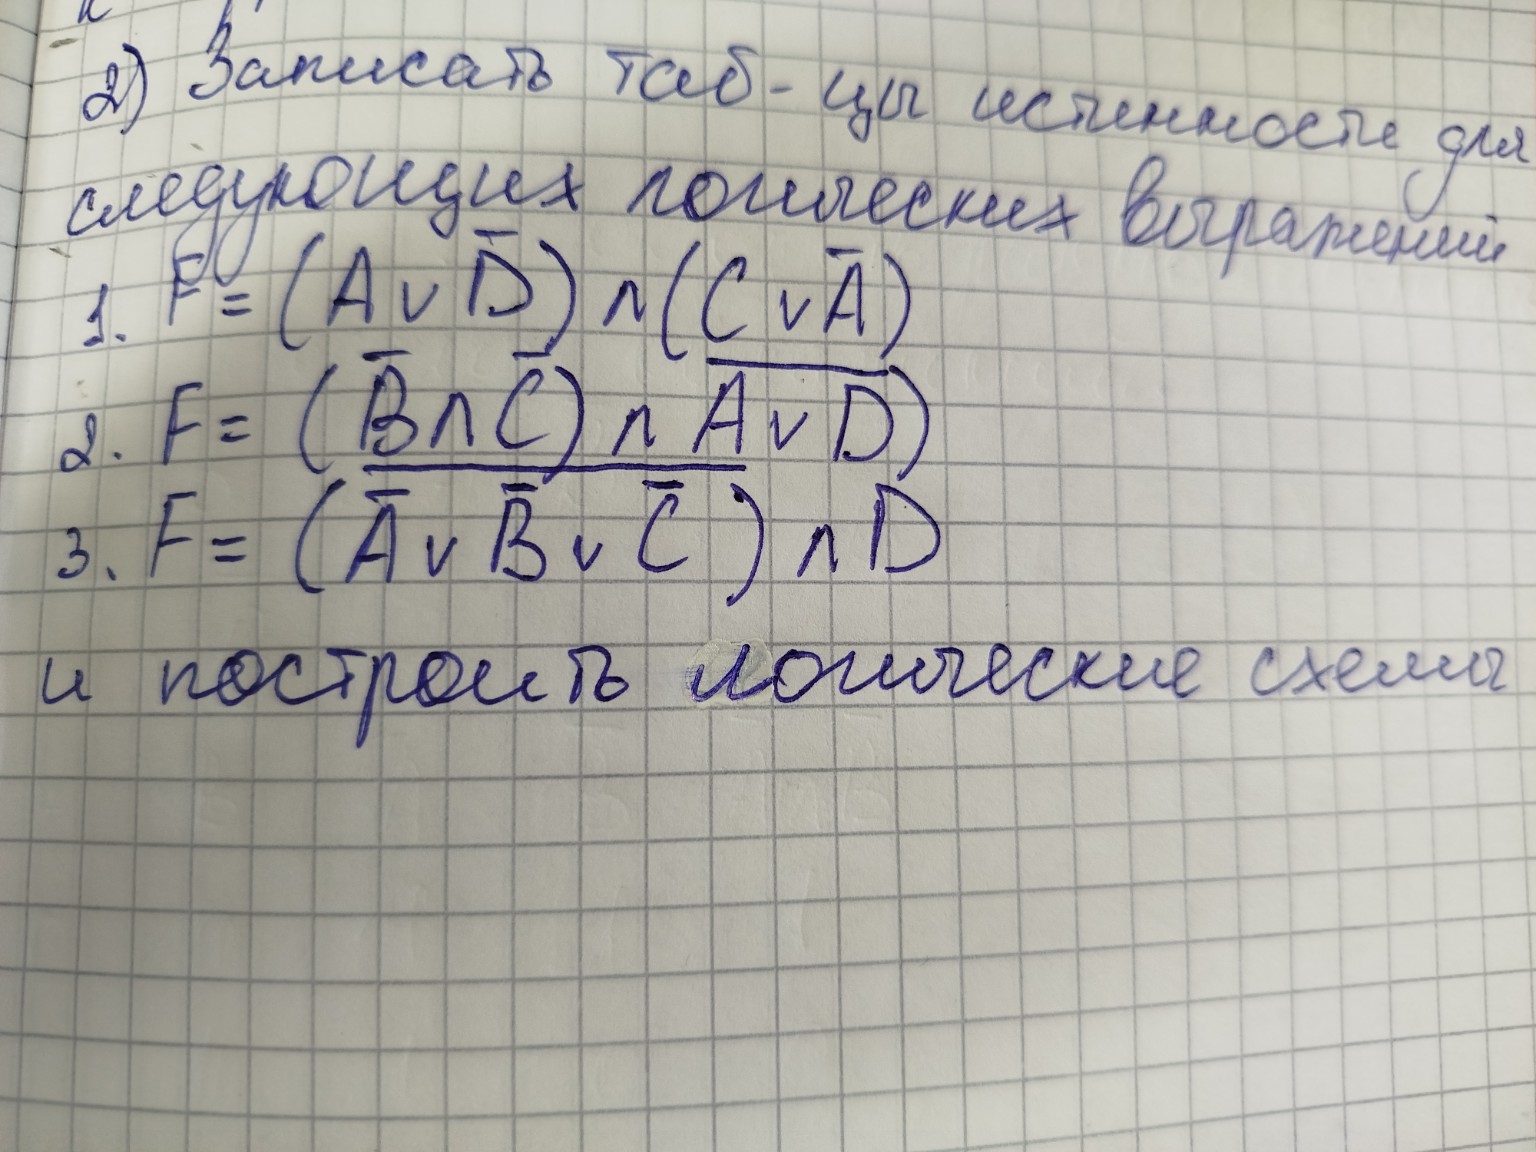 2) Записать таб-цы истинности для
следующих логических выражений
1. F = (A ∨ D̅) ∧ (C ∨ A̅)
2. F = (B̅ ∧ C̅) ∧ (A̅ ̅∨̅ ̅D̅)
3. F = (A̅ ∨ B̅ ∨ C̅) ∧ D
и построить логические схемы